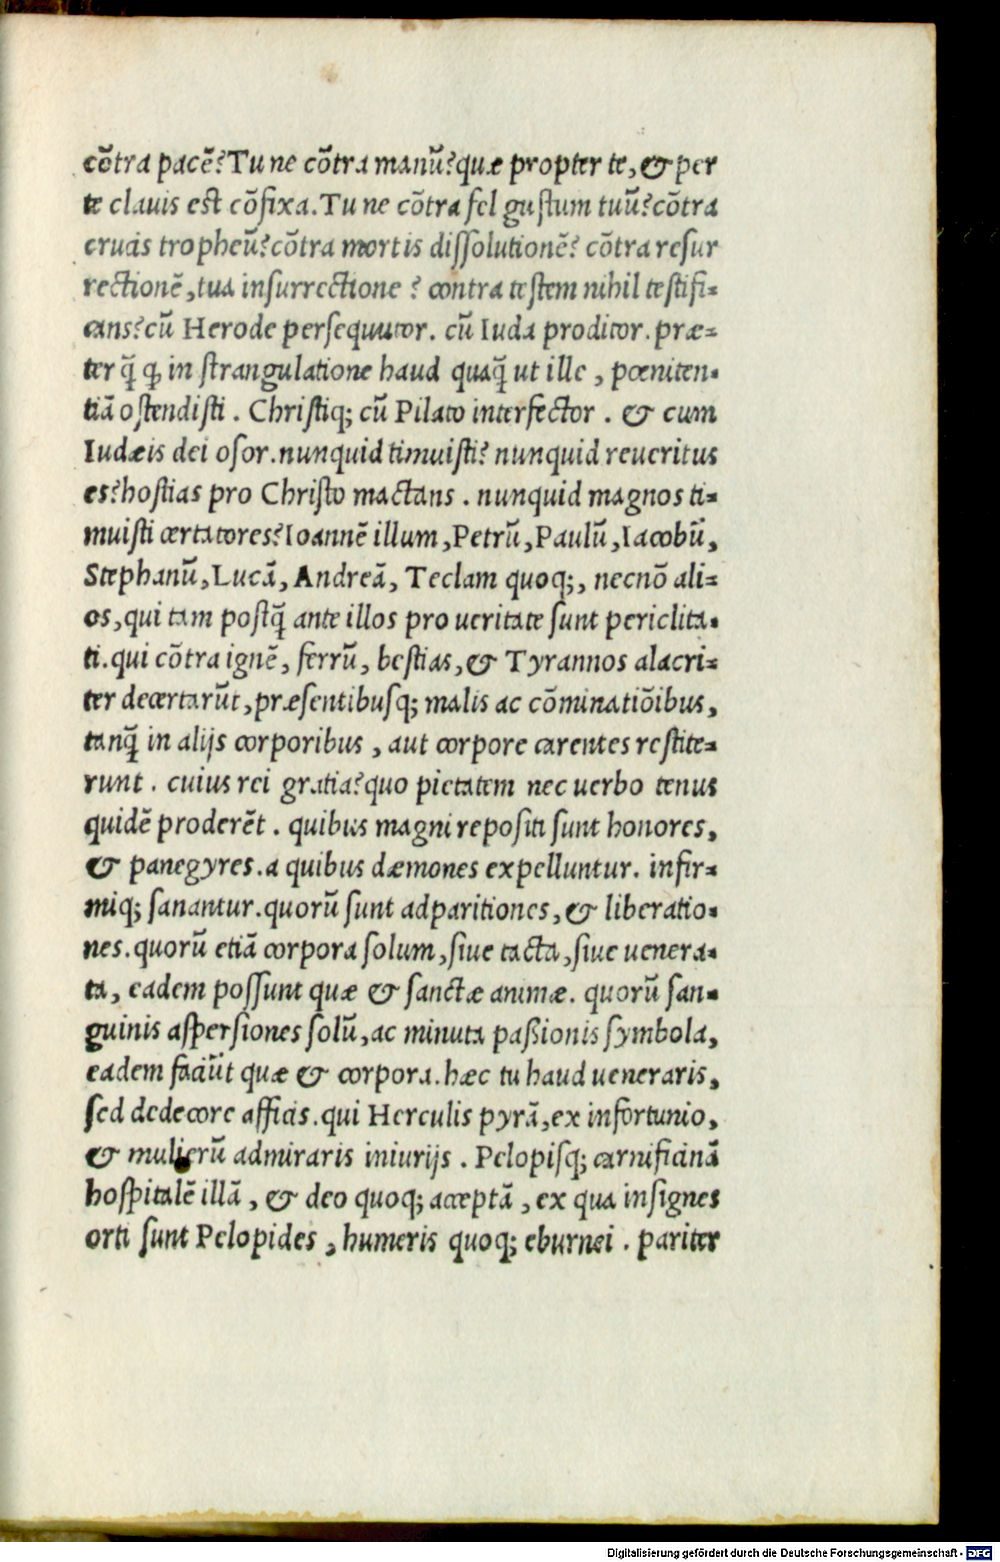 cõtra pacẽ? Tu ne cõtra manũ? quæ propter te, & per
te clauis est cõfixa. Tu ne cõtra fel gustum tuũ? cõtra
crucis tropheũ? cõtra mortis dissolutionẽ? cõtra resur
rectionẽ, tua insurrectione? contra testem nihil testifi-
cans? cũ Herode persequutor. cũ Iuda proditor. præ-
ter q̃ ꝙ in strangulatione haud quaq̃ ut ille, pœniten-
tiã ostendisti. Christiq; cũ Pilato interfector. & cum
Iudæis dei osor. nunquid timuisti? nunquid reueritus
es? hostias pro Christo mactans. nunquid magnos ti-
muisti certatores? Ioannẽ illum, Petrũ, Paulũ, Iacobũ,
Stephanũ, Lucã, Andreã, Teclam quoq;, necnõ ali-
os, qui tam postq̃ ante illos pro ueritate sunt periclita-
ti. qui cõtra ignẽ, ferrũ, bestias, & Tyrannos alacri-
ter decertarũt, præsentibusq; malis ac cõminatiõibus,
tanq̃ in alijs corporibus, aut corpore carentes restite-
runt. cuius rei gratia? quo pietatem nec uerbo tenus
quidẽ proderẽt. quibus magni repositi sunt honores,
& panegyres. a quibus dæmones expelluntur. infir-
miq; sanantur. quorũ sunt adparitiones, & liberatio-
nes. quorũ etiã corpora solum, siue tacta, siue uenera-
ta, eadem possunt quæ & sanctæ animæ. quorũ san-
guinis aspersiones solũ, ac minuta passionis symbola,
eadem faciũt quæ & corpora. hæc tu haud ueneraris,
sed dedecore afficis. qui Herculis pyrã, ex infortunio,
& mulierũ admiraris iniurijs. Pelopisq; carnificinã
hospitalẽ illã, & deo quoq; acceptã, ex qua insignes
orti sunt Pelopides, humeris quoq; eburnei. pariter
Digitalisierung gefördert durch die Deutsche Forschungsgemeinschaft - DFG